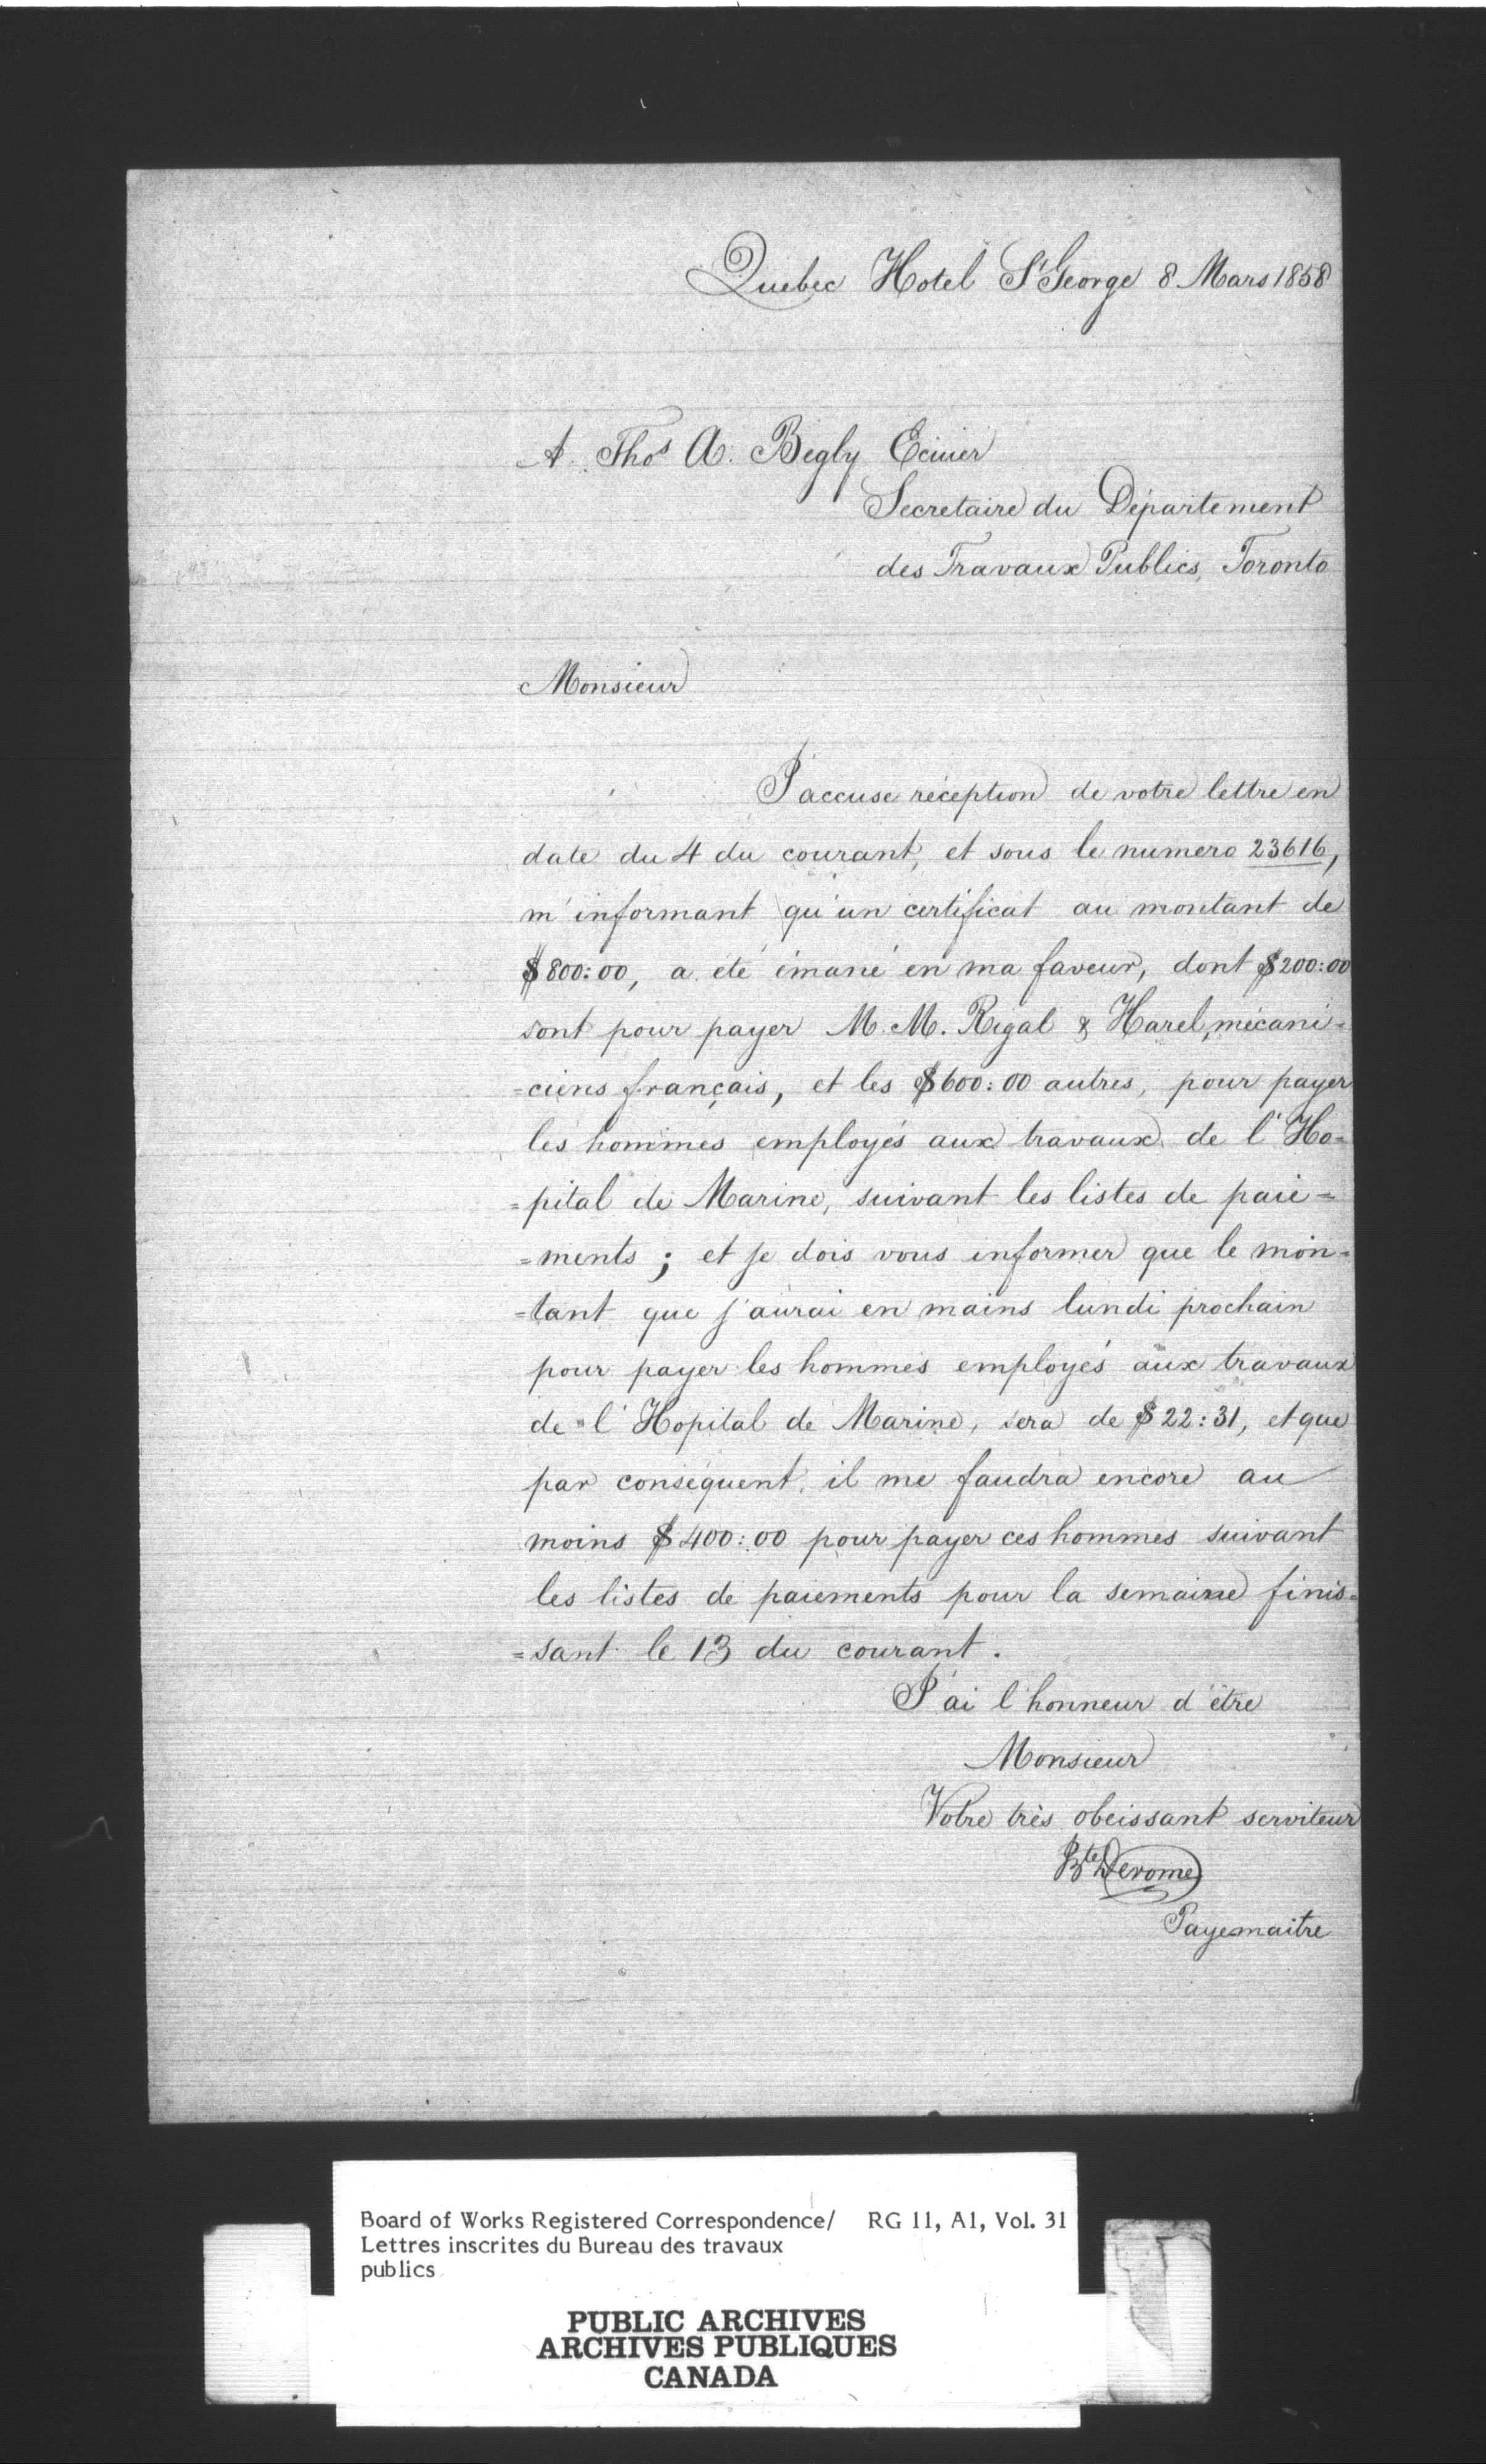 Quebec Hotel St George 8 Mars 1858
A. Thos A. Begly Ecuier
Secretaire du Département
des Travaux Publics, Toronto
Monsieur
J'accuse réception de votre lettre en
date du 4 du courant, et sous le numero 23616,
m'informant qu'un certificat au montant de
$800:00, a été émané en ma faveur, dont $200:00
sont pour payer M. M. Rigal & Harel, mécani=
=ciens français, et les $600:00 autres, pour payer
les hommes employés aux travaux de l'Ho=
=pital de Marine, suivant les listes de paie=
=ments ; et je dois vous informer que le mon=
=tant que j'aurai en mains lundi prochain
pour payer les hommes employés aux travaux
de l'Hopital de Marine, sera de $22:31, et que
par conséquent, il me faudra encore au
moins $400:00 pour payer ces hommes suivant
les listes de paiements pour la semaine finis=
=sant le 13 du courant.
J'ai l'honneur d'être
Monsieur
Votre très obeissant serviteur
Bte Derome
Payemaitre
Board of Works Registered Correspondence/ RG 11, A1, Vol. 31
Lettres inscrites du Bureau des travaux
publics
PUBLIC ARCHIVES
ARCHIVES PUBLIQUES
CANADA